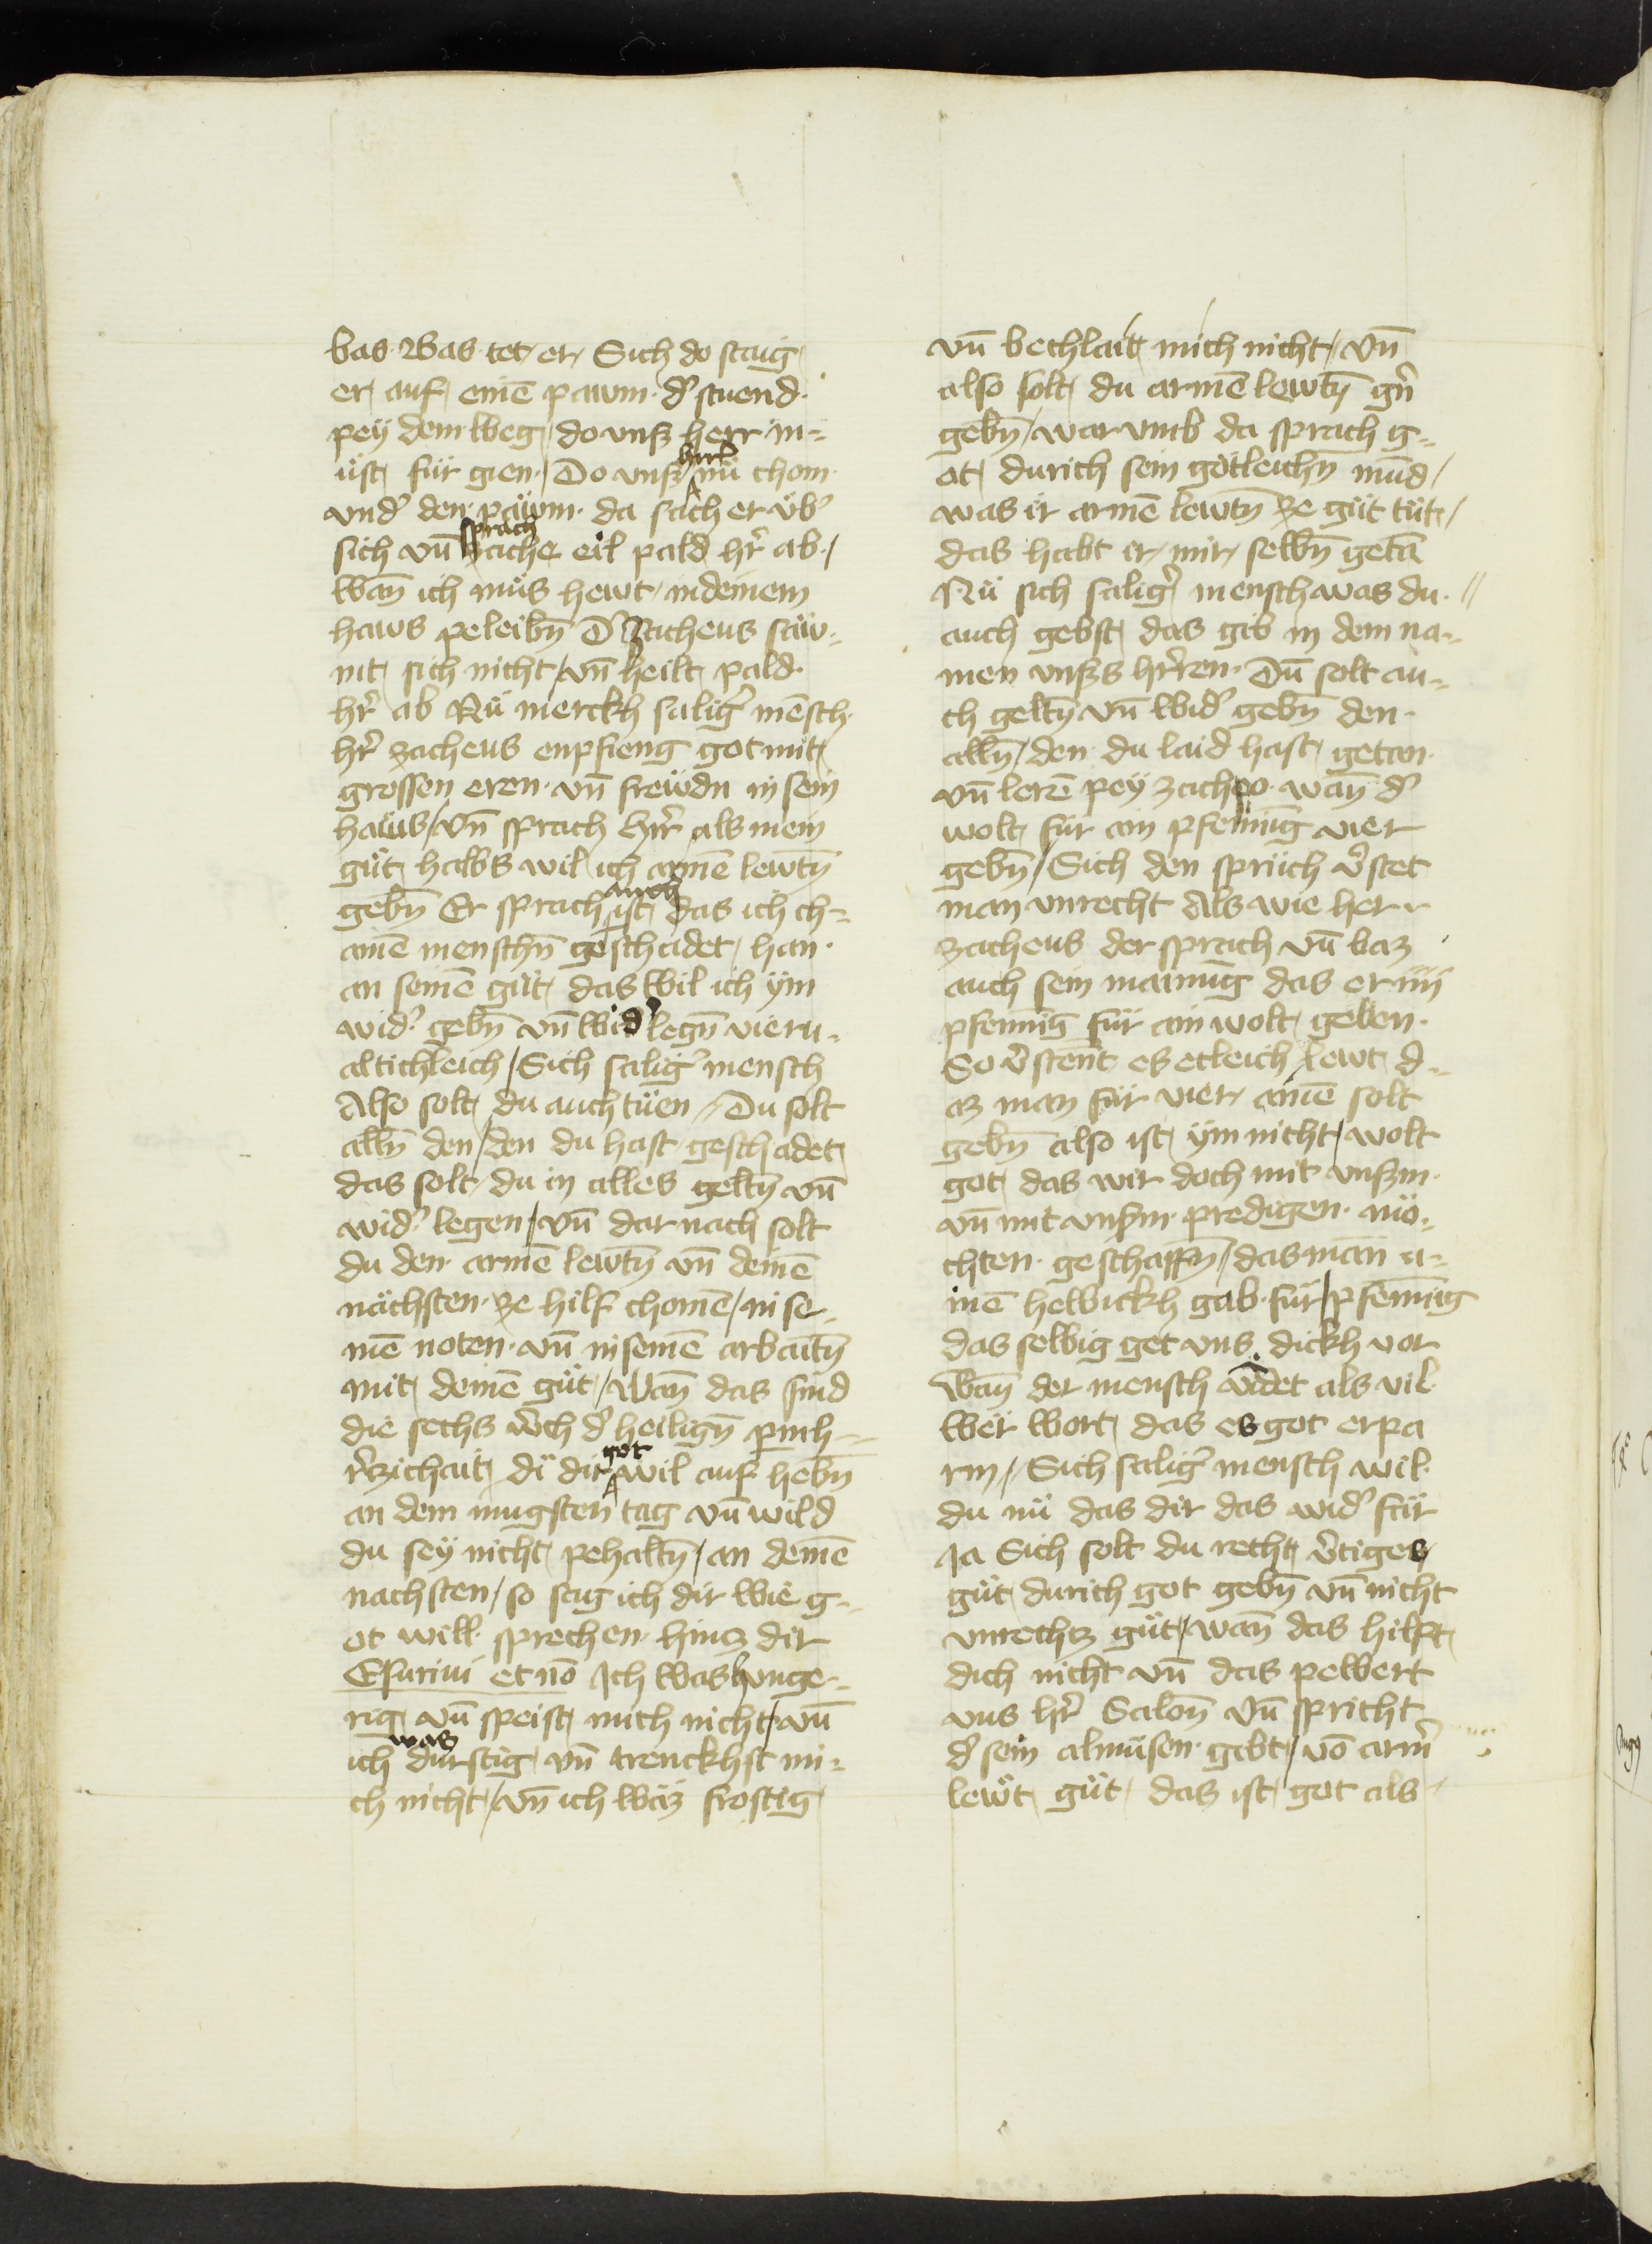 bas. Was tet er Sich do staig
er auf einē pawm. d' stuend.
pey dem weg do vnß herr in-
üst für gien. Do vnß herr nü chom
vnd' den pawm. da sach er vb'
sich vn̄ sprach zache eil pald hr̄ ab /
wan̄ ich müs hewt in deinem
haws peleibn̄ D' Zacheus saw-
nit sich nicht / vn̄ heilt pald.
hr̄ ab Nü merckh salig' mēsch
hr̄ zacheus enpfieng got mit
grossen eren. vn̄ frewdn in sein
haws / vn̄ sprach hr̄r als mein
güt halbs wil ich armē lewtn̄
gebn̄ Er sprach auch ist das ich ch-
ainē menschn̄ geschadet han.
an seinē güt das wil ich ym
wid' gebn̄ vn̄ wid' legn̄ vieru-
altichleich / Sich salig' mensch
Also solt du auch tüen / Du solt
alln̄ den / den du hast geschadet
das solt du in alles geltn̄ vn̄
wid' legen / vn̄ dar nach solt
du den armē lewtn̄ vn̄ deinē
nächsten. ze hilf chomē / in se-
inē noten. vn̄ in seinē arbaitn̄
mit deinē güt / Wan̄ das sind
die sechs w̄ch d' heilign̄ parmh-
r̄zichait di dir got wil auf hebn̄
an dem iungsten tag vn̄ wild
du sey nicht pehaltn̄ / an deinē
nachsten / so sag ich dir wie g-
ot will sprechen hinz dir
Esuriui et nō Ich was hunge-
rig vn̄ speist mich nicht / vn̄
ich was durstig vn̄ trenckhst mi-
ch nicht / vn̄ ich waz frostig
vn̄ bechlait mich nicht / vn̄
also solt du armē lewtn̄ gn̄
gebn̄ / war vmb da sprach g-
ot durich sein götleichn̄ mūd /
was ir armē lewtn̄ ze güt tüt /
das habt ir mir selbn̄ getā
Nü sich salig' mensch was du.
auch gebst das gib in dem na-
men vnßs hr̄ren. Dū solt au-
ch geltn̄ vn̄ wid' gebn̄ den.
alln̄ / den du laid hast getan.
vn̄ lerē pey zacheo. wan̄ d'
wolt für ain pfening vier
gebn̄ / Sich den sprüch v̄stet
man vnrecht Als wie herr
zacheus der sprach vn̄ baz
auch sein mainūg das er iiij
pfennig für ain wolt geben.
So v̄stent es etleich lewt d-
az man für vier ainē solt
gebn̄ also ist ym nicht / wolt
got das wir doch mit vnßm.
vn̄ mit vnßm. predigen. mö-
chten. geschaffn̄ / das man a-
inē helbickh gab. für / pfenning
das selbig get vns dickh vor
wan̄ der mensch v̂det als vil
wer wort das es got erpa
rm / Sich salig' mensch wil.
du nü das dir das wid' far
Ja Sich solt du recht v̄tiges
güt durich got gebn̄ vn̄ nicht
vnrechtz güt / wan̄ das hilft
dich nicht vn̄ das pewert
vns hr̄ Salon̄ vn̄ spricht
d' sein almüsen gebt / vō arm̄
lewt güt das ist got als